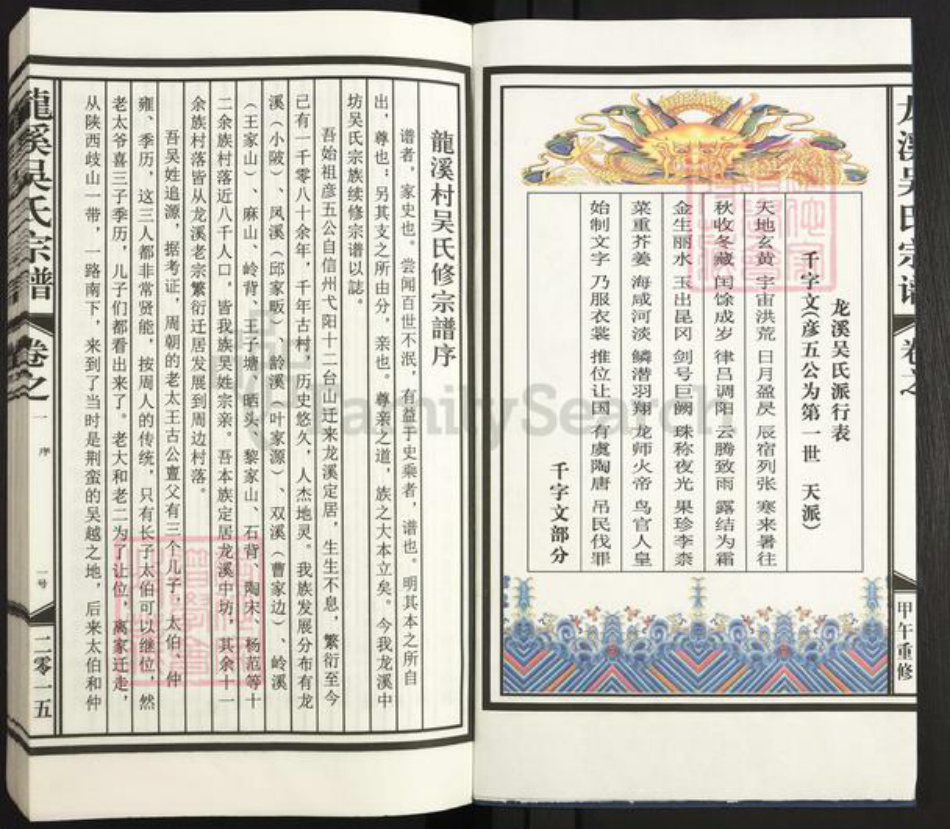 龙溪吴氏派行表
千字文(彦五公为第一世 天派)
天地玄黄 宇宙洪荒 日月盈昃 辰宿列张 寒来暑往
秋收冬藏 闰馀成岁 律吕调阳 云腾致雨 露结为霜
金生丽水 玉出昆冈 剑号巨阙 珠称夜光 果珍李柰
菜重芥姜 海咸河淡 鳞潜羽翔 龙师火帝 鸟官人皇
始制文字 乃服衣裳 推位让国 有虞陶唐 吊民伐罪
千字文部分
甲午重修
龍溪村吴氏修宗譜序
谱者，家史也。尝闻百世不泯，有益于史乘者，谱也。明其本之所自
出，尊也；另其支之所由分，亲也。尊亲之道，族之大本立矣。今我龙溪中
坊吴氏宗族续修宗谱以誌。
吾始祖彦五公自信州弋阳十二台山迁来龙溪定居，生生不息，繁衍至今
己有一千零八十余年，千年古村，历史悠久，人杰地灵。我族发展分布有龙
溪（小陂）、凤溪（邱家畈）、龄溪（叶家源）、双溪（曹家边）、岭溪
（王家山）、麻山、岭背、王子塘、晒头、黎家山、石背、陶宋、杨范等十
二余族村落近八千人口，皆我族吴姓宗亲。吾本族定居龙溪中坊，其余十一
余族村落皆从龙溪老宗繁衍迁居发展到周边村落。
吾吴姓追源，据考证，周朝的老太王古公亶父有三个儿子，太伯、仲
雍、季历，这三人都非常贤能，按周人的传统，只有长子太伯可以继位，然
老太爷喜三子季历，儿子们都看出来了。老大和老二为了让位，离家迁走，
从陕西歧山一带，一路南下，来到了当时是荆蛮的吴越之地，后来太伯和仲
龍溪吴氏宗譜
卷之一
序
一号
二零一五
FamilySearch